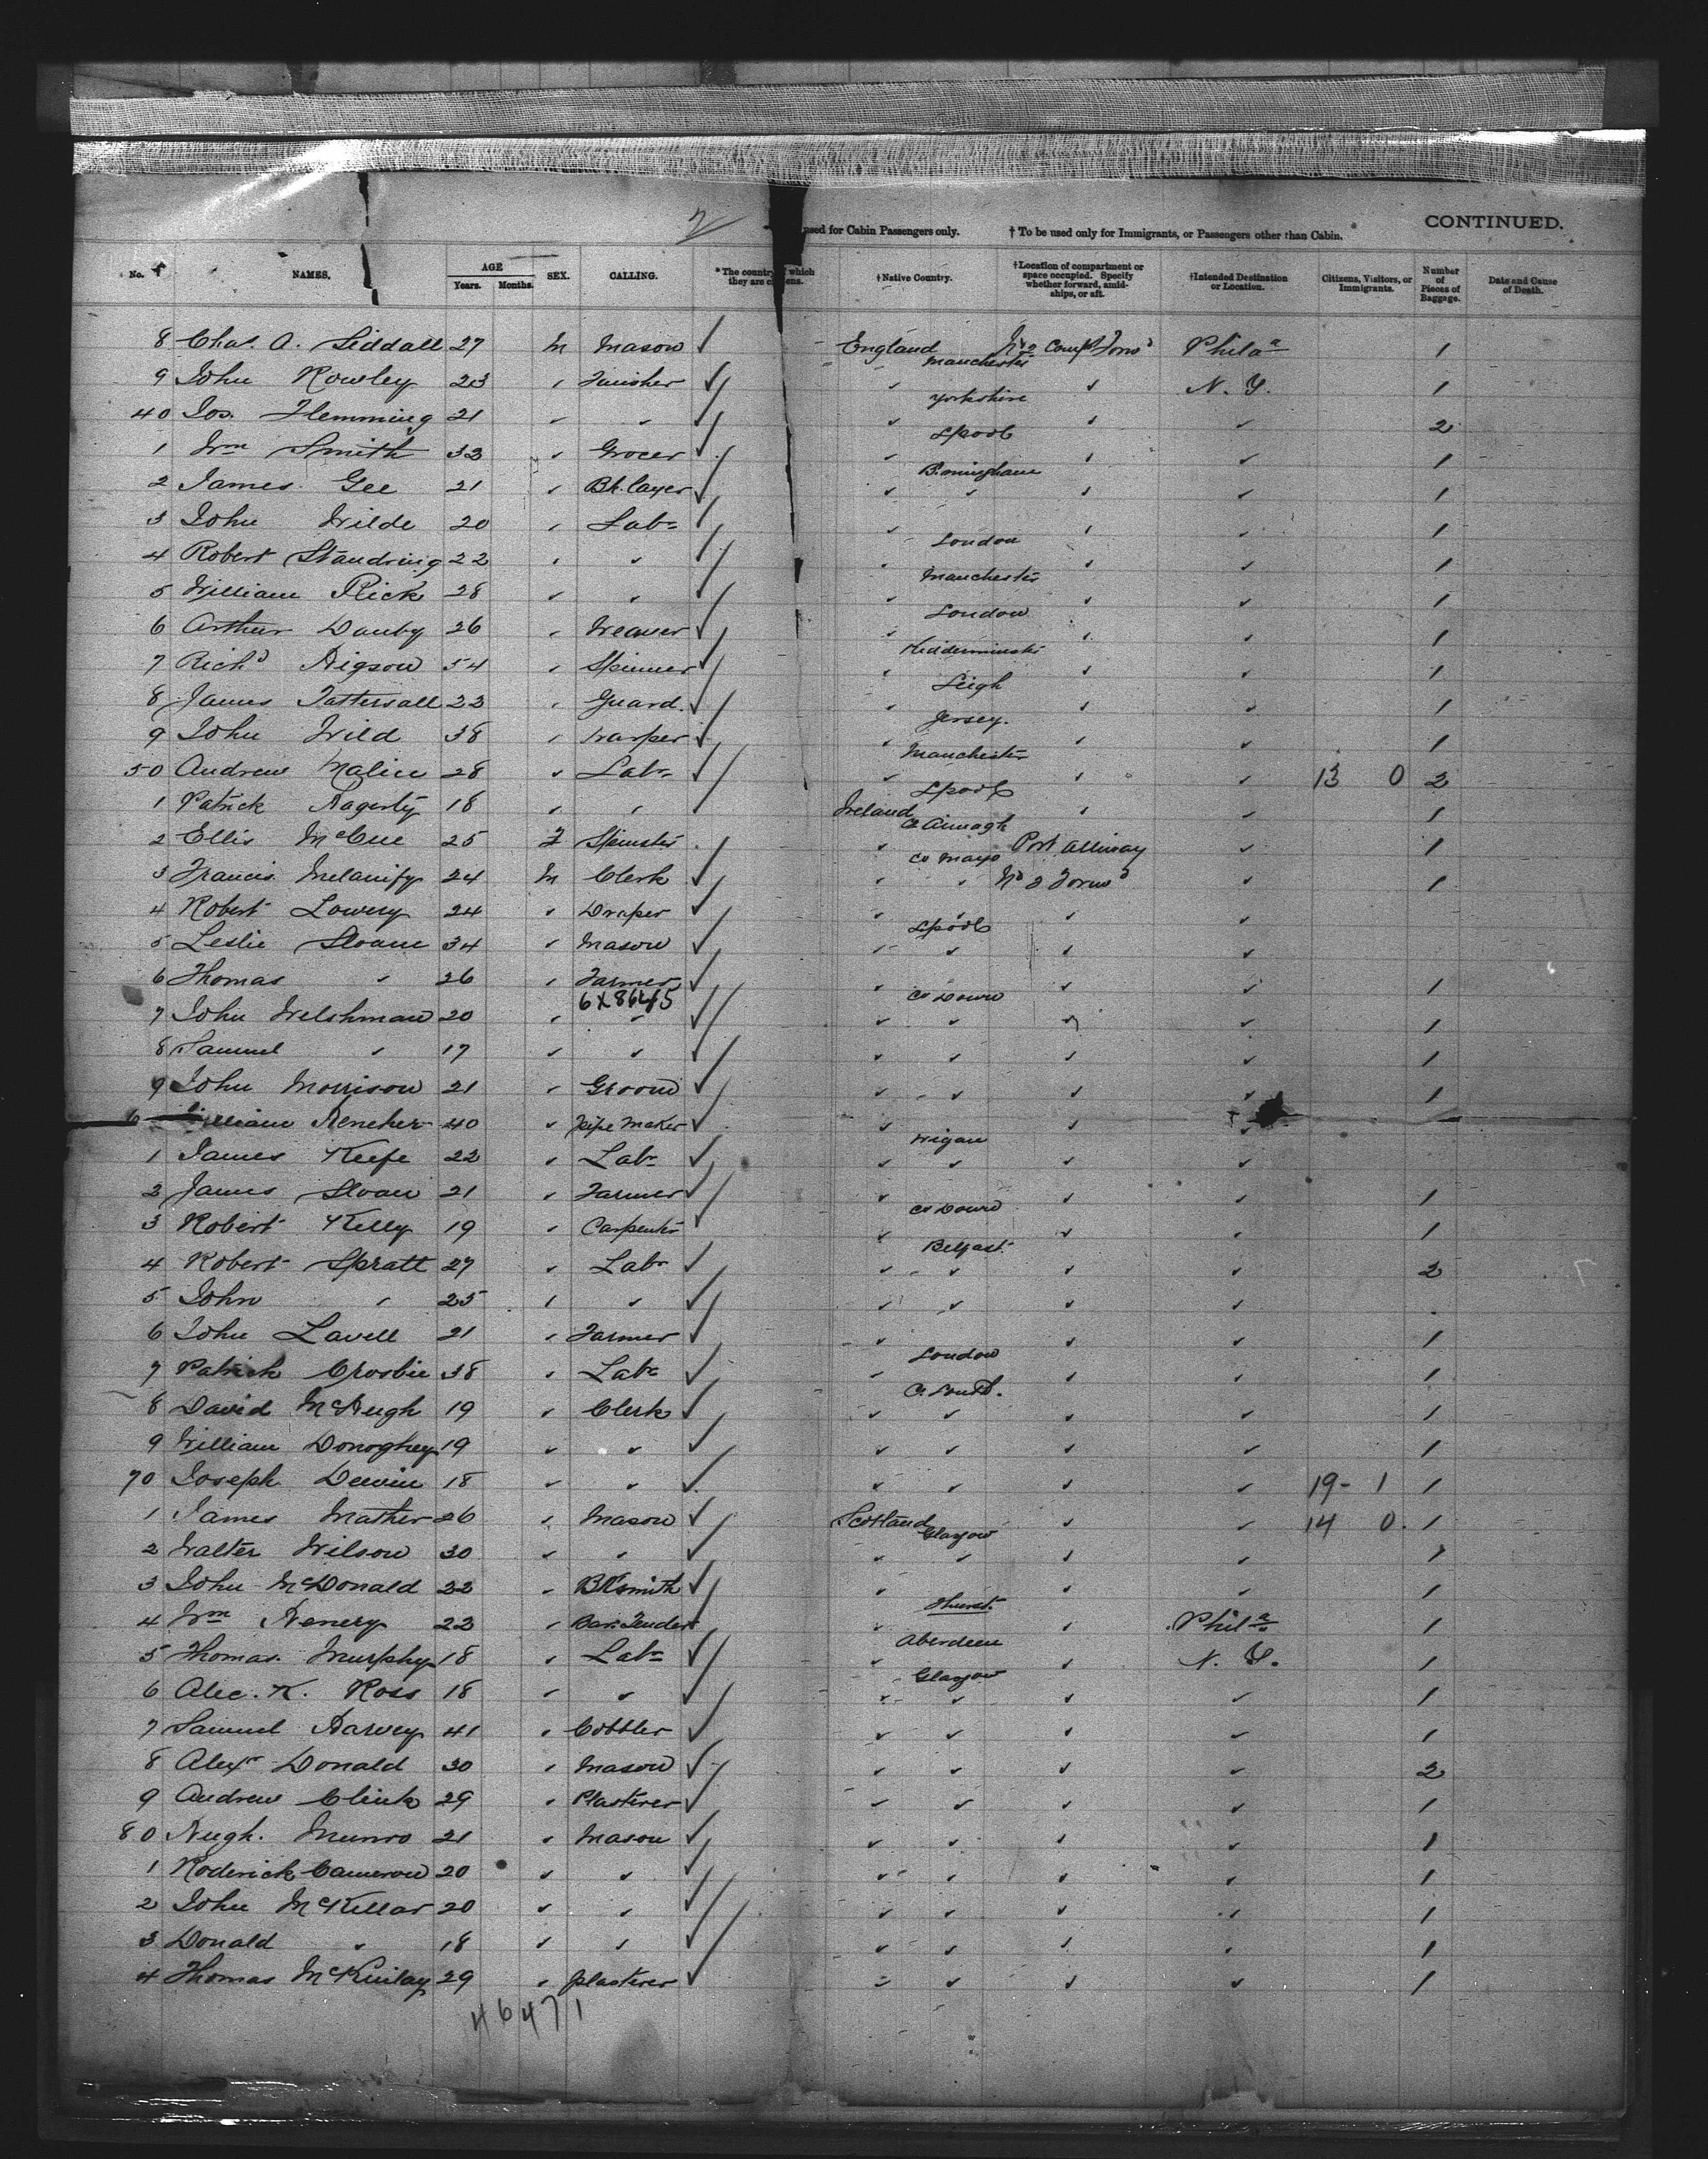 2
used for Cabin Passengers only. † To be used only for Immigrants, or Passengers other than Cabin. CONTINUED.
No. NAMES. AGE Years. Months. SEX. CALLING. * The country of which they are citizens. † Native Country. † Location of compartment or space occupied. Specify whether forward, amidships, or aft. † Intended Destination or Location. Citizens, Visitors, or Immigrants. Number of Pieces of Baggage. Date and Cause of Death.
8 Chas. A. Siddall 27 M Mason ✓ England Manchester No 2 Compt Forwd Phila 1
9 John Rowley 23 " Finisher ✓ " Yorkshire " N. Y. 1
40 Jos. Flemming 21 " " ✓ " Lpool " " 2
1 Wm Smith 32 " Grocer ✓ " Birmingham " " 1
2 James Gee 21 " Bk. layer ✓ " " " " 1
3 John Wilde 20 " Labr ✓ " London " " 1
4 Robert Standring 22 " " ✓ " Manchester " " 1
5 William Rick 28 " " ✓ " London " " 1
6 Arthur Danby 26 " Weaver ✓ " Kidderminster " " 1
7 Richd Higson 54 " Spinner ✓ " Leigh " " 1
8 James Tattersall 22 " Guard. ✓ " Jersey. " " 1
9 John Wild 38 " Warper ✓ " Manchester " " 1
50 Andrew Malin 28 " Labr ✓ " Lpool " " 13 0 2
1 Patrick Hagerty 18 " " ✓ Ireland Co Armagh " " 1
2 Ellis McCue 25 F Spinster ✓ " Co Mayo Port Alleway " 1
3 Francis Melanify 24 M Clerk ✓ " " No 2 Forwd " 1
4 Robert Lowery 24 " Draper ✓ " Lpool " "
5 Leslie Sloane 34 " Mason ✓ " " " "
6 Thomas " 26 " Farmer ✓ " Co Down " " 1
6X86415
7 John Welshman 20 " " ✓ " " " " 1
8 Samuel " 17 " " ✓ " " " " 1
9 John Morrison 21 " Groom ✓ " " " " 1
6 William 40 " Pipe Maker ✓ " Wigan " "
1 James Keefe 22 " Labr ✓ " " " "
2 James Sloan 21 " Farmer ✓ " Co Down " " 1
3 Robert Kelly 19 " Carpenter ✓ " Belfast " " 1
4 Robert Spratt 27 " Labr ✓ " " " " 2
5 John " 25 " " ✓ " " " "
6 John Lavell 21 " Farmer ✓ " London " " 1
7 Patrick Crosbie 38 " Labr ✓ " Co. Louth. " " 1
8 David McHugh 19 " Clerk ✓ " " " " 1
9 William Donoghey 19 " " ✓ " " " " 1
70 Joseph Devin 18 " " ✓ " " " " 19- 1 1
1 James Mather 26 " Mason ✓ Scotland Glasgow " " 14 0. 1
2 Walter Wilson 30 " " ✓ " " " " 1
3 John McDonald 22 " Bksmith ✓ " " " 1
4 Wm Henery 22 " Bar. Tender ✓ " Aberdeen " Phila 1
5 Thomas Murphy 18 " Labr ✓ " Glasgow " N. Y. 1
6 Alec. K. Ross 18 " " ✓ " " " " 1
7 Samuel Harvey 41 " Cobbler ✓ " " " " 1
8 Alexr Donald 30 " Mason ✓ " " " " 2
9 Andrew Clink 29 " Plasterer ✓ " " " " 1
80 Hugh. Munro 21 " Mason ✓ " " " " 1
1 Roderick Cameron 20 " " ✓ " " " " 1
2 John McKellar 20 " " ✓ " " " " 1
3 Donald " 18 " " ✓ " " " " 1
4 Thomas McKinlay 29 " plasterer ✓ " " " " 1
46471